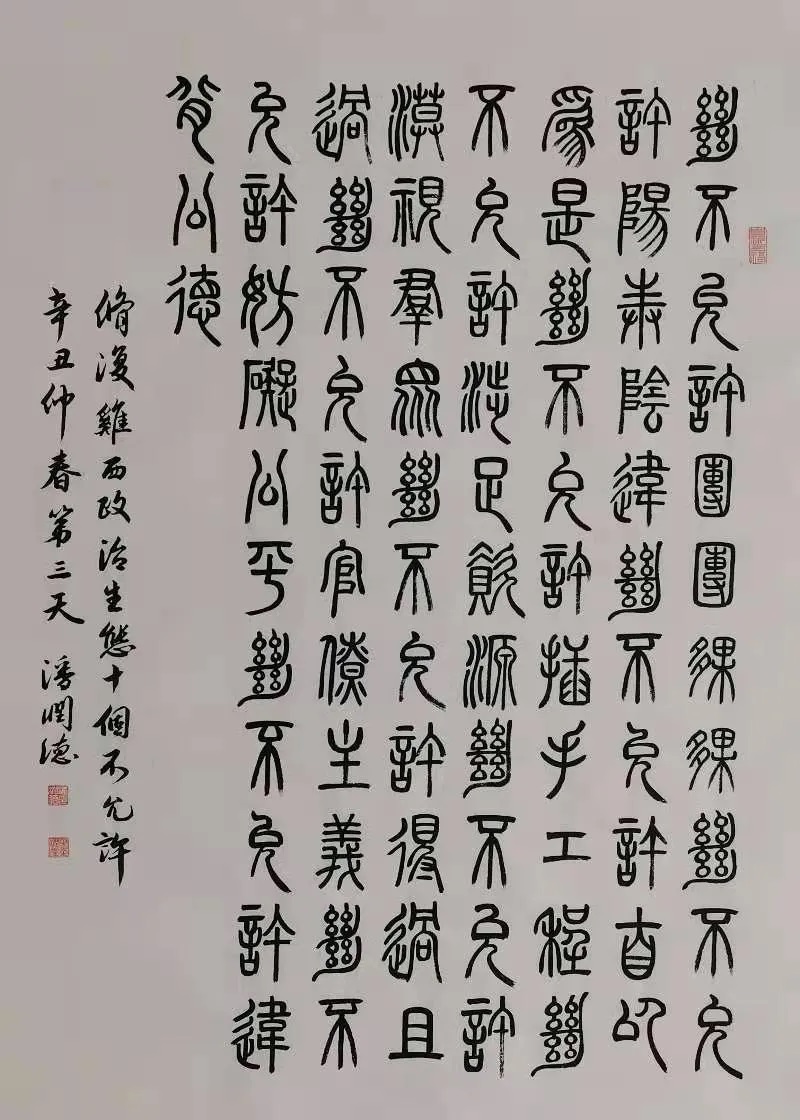 絕不允許團團夥夥絕不允
許陽奉陰違絕不允許自以
為是絕不允許插手工程絕
不允許涉足資源絕不允許
漠視羣眾絕不允許得過且
過絕不允許官僚主義絕不
允許妨礙公平絕不允許違
背公德
脩復雞西政治生態十個不允許
辛丑仲春第三天 潘潤德